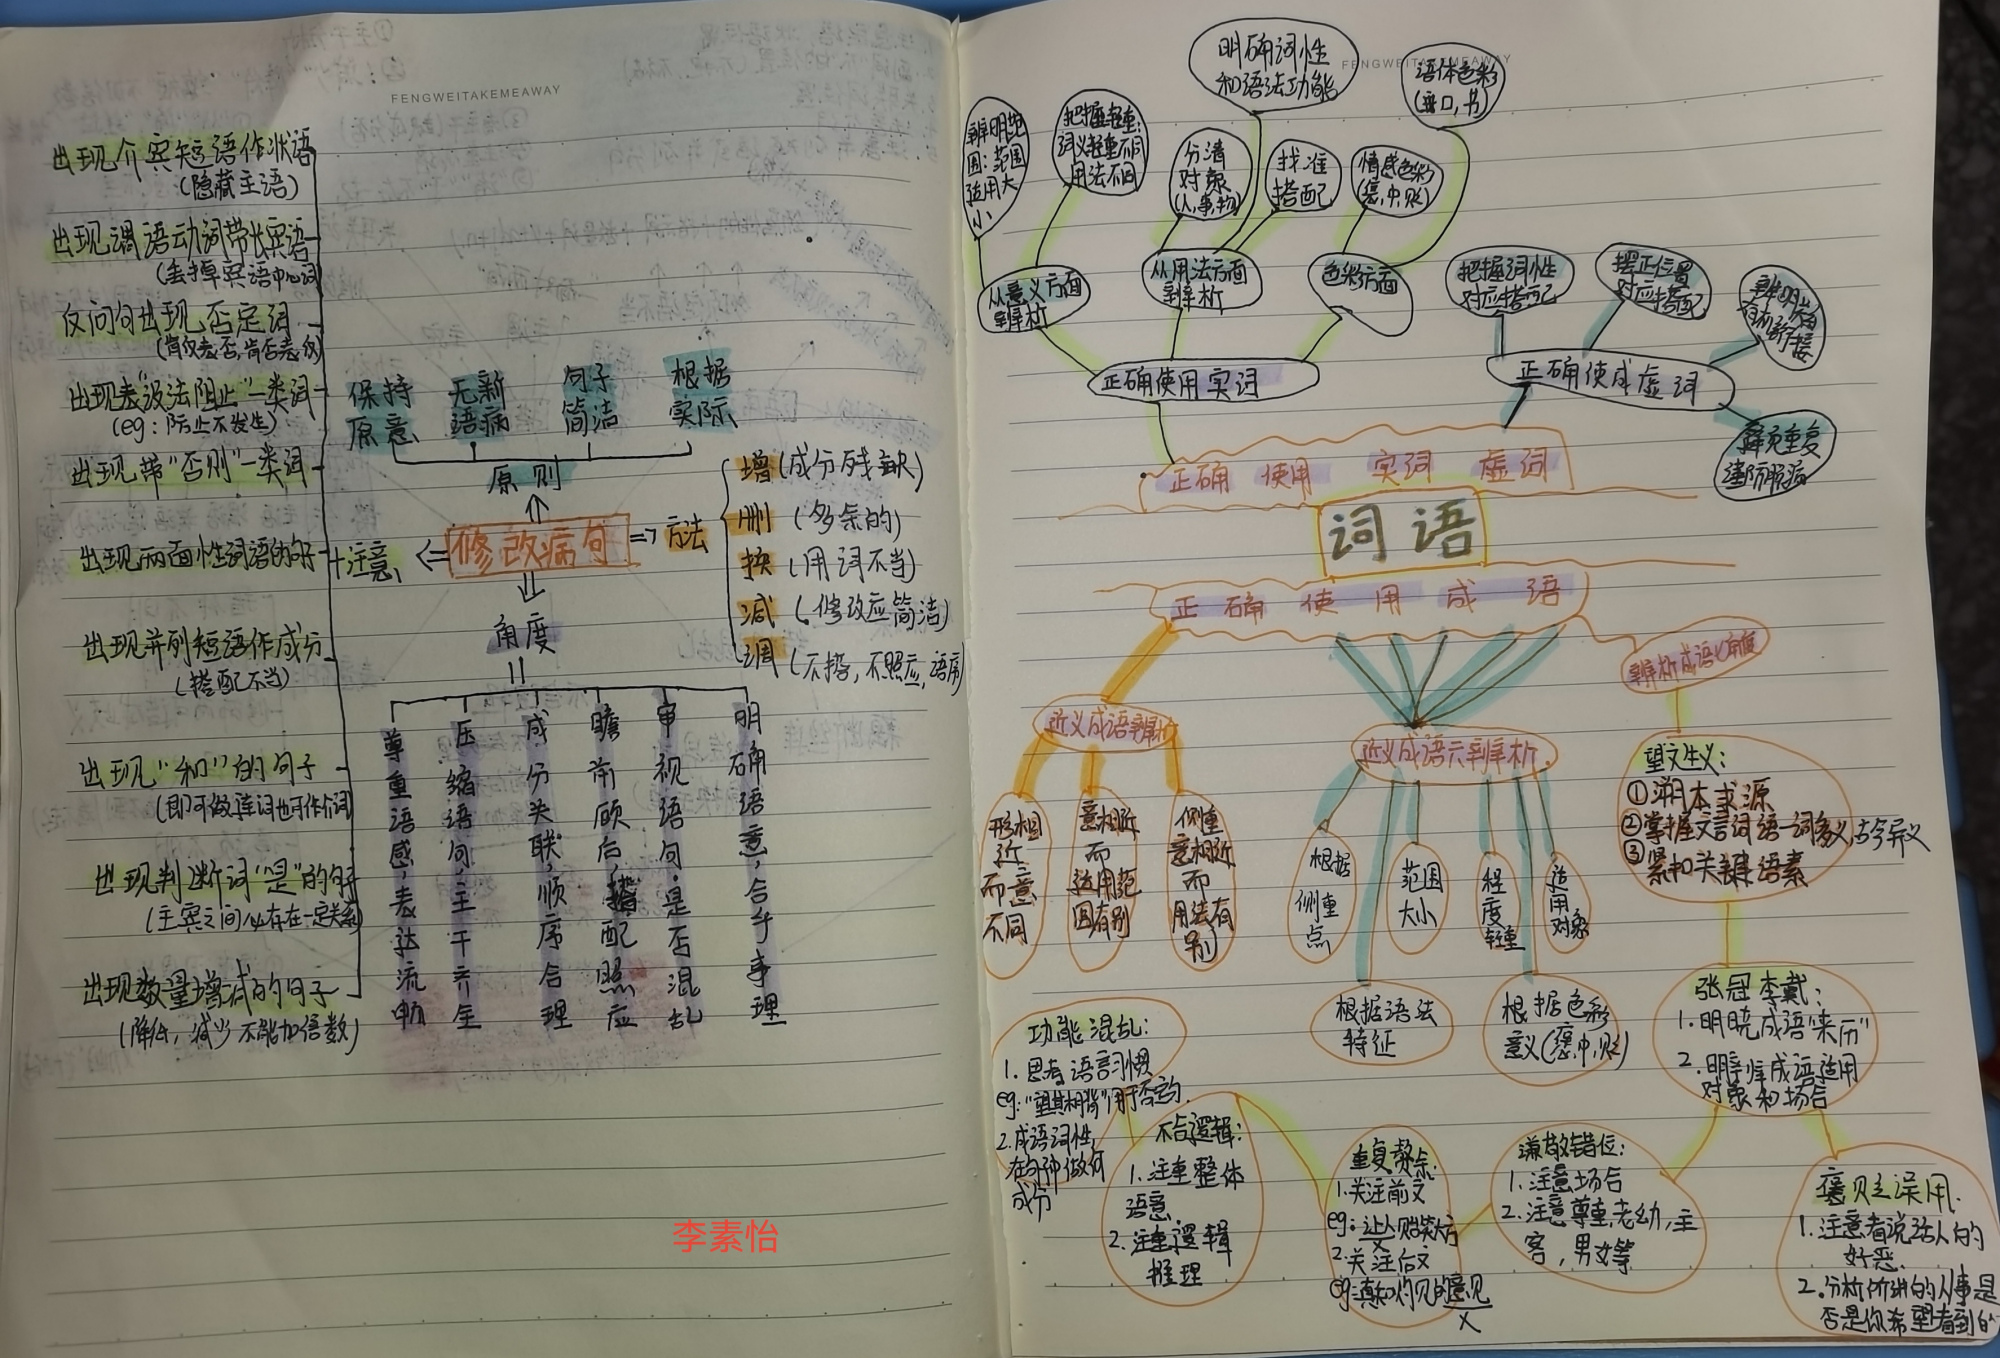 FENGWEITAKEMEAWAY
出现介宾短语作状语
(隐藏主语)
出现谓语动词带长宾语
(丢掉宾语中心词)
反问句出现否定词
出现表"设法阻止"一类词
(eg:防止不发生)
出现带"否则"一类词
出现两面性词语的句子
出现并列短语作成分
(搭配不当)
出现"和"的句子
(即可做连词也可作介词)
出现判断词"是"的句子
(主宾之间必存在一定关系)
出现数量增减的句子
(降低,减少不能加倍数)
注意
保持
原意
无新
语病
句子
简洁
根据
实际
原则
修改病句
方法
增(成分残缺)
删(多余的)
换(用词不当)
减(修改应简洁)
调(不搭,不照应,语序)
角度
尊重语感,表达流畅
压缩语句,主干齐全
成分关联,顺序合理
瞻前顾后,搭配照应
审视语句,是否混乱
明确语意,合乎事理
李素怡
FENGWEITAKEMEAWAY
明确词性
和语法功能
语体色彩
(口,书)
辨明范
围:范围
适用大
小
把握轻重:
词义轻重不同
用法不同
分清
对象
(人,事,物)
找准
搭配
情感色彩
(褒,中,贬)
从意义方面
辨析
从用法方面
辨析
色彩方面
把握词性
对应搭配
摆正位置
对应搭配
正确使用实词
正确使成虚词
避免重复
谨防服病
正确使用实词虚词
词语
正确使用成语
辨析成语义角度
近义成语辨析
近义成语六辨析
形相
近
而意
不同
意相近
而
适用范
围有别
侧重
意相近
而
用法有
别
根据
侧重
点
范围
大小
程度
轻重
适用
对象
根据语法
特征
根据色彩
意义(褒,中,贬)
望文生义:
①溯本求源
②掌握文言词语一词多义,古今异义
③紧扣关键语素
张冠李戴:
1.明晓成语"来历"
2.明辩成语适用
对象和场合
功能混乱:
1.思考语言习惯
eg:"望其项背"用于否定句.
2.成语词性,
在句种做何
成分
不合逻辑:
1.注重整体
语意.
2.注重逻辑
推理
重复赘余.
1.关注前文
eg:让人贻笑大方
×
2.关注后文
eg:真知灼见的意见
×
谦敬错位:
1.注意场合
2.注意尊重,老幼,主
客,男女等
褒贬误用.
1.注意看说话人的
好恶.
2.分析所讲的人事是
否是你希望看到的